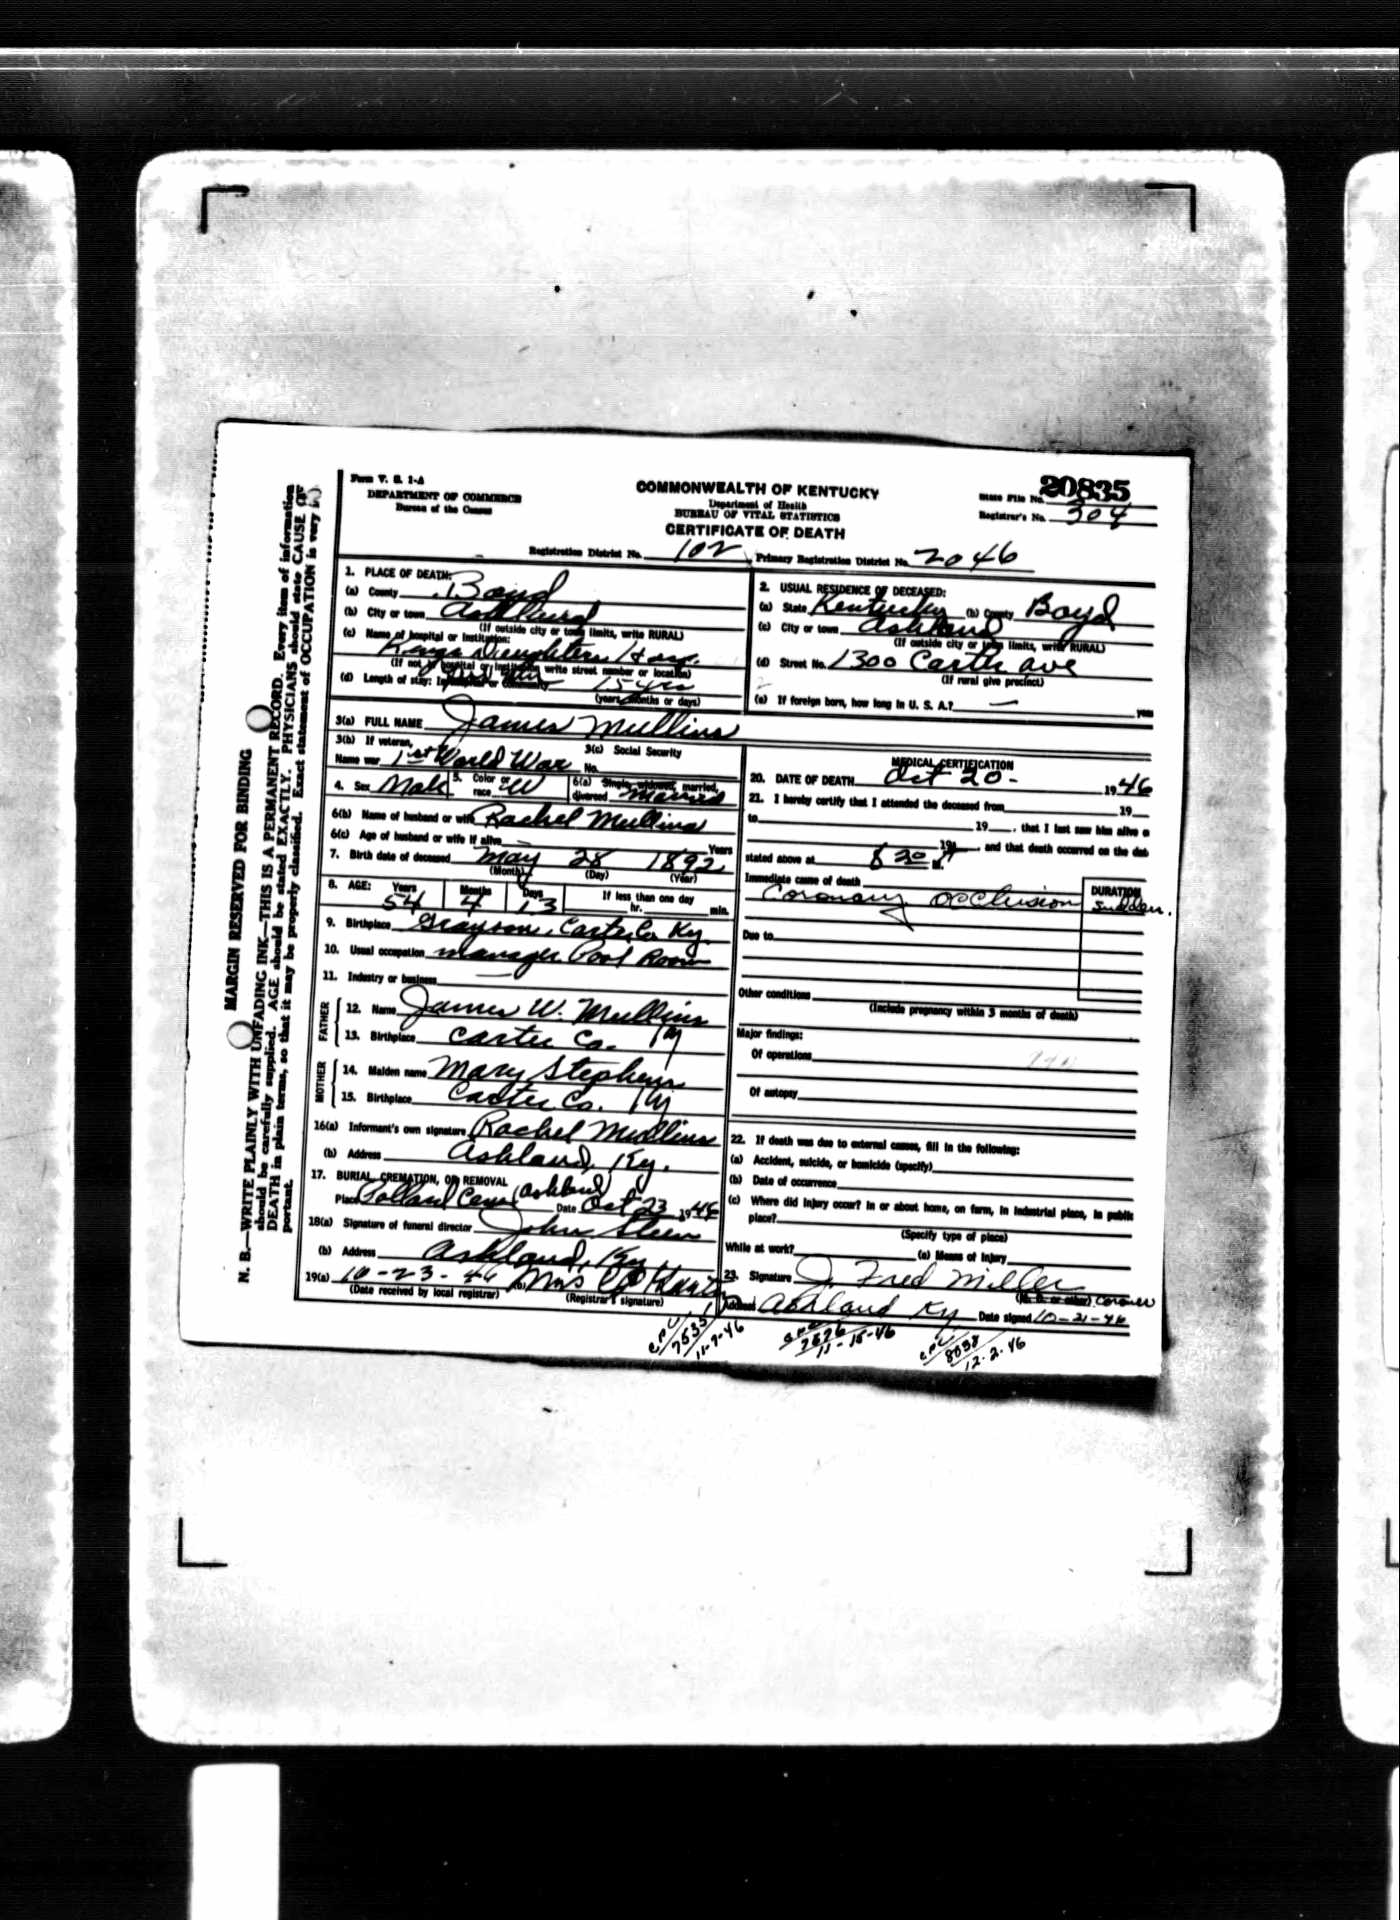 Form V. S. 1-A
DEPARTMENT OF COMMERCE
Bureau of the Census
COMMONWEALTH OF KENTUCKY
Department of Health
BUREAU OF VITAL STATISTICS
CERTIFICATE OF DEATH
State File No. 20835
Registrar's No. 304
Registration District No. 102 Primary Registration District No. 2046
1. PLACE OF DEATH:
(a) County Boyd
(b) City or town Ashland
(If outside city or town limits, write RURAL)
(c) Name of hospital or institution:
Kings Daughters Hosp.
(If not in hospital or institution write street number or location)
(d) Length of stay: In hospital or community 15 yrs
(years, months or days)
2. USUAL RESIDENCE OF DECEASED:
(a) State Kentucky (b) County Boyd
(c) City or town Ashland
(If outside city or town limits, write RURAL)
(d) Street No. 1300 Carth ave
(If rural give precinct)
(e) If foreign born, how long in U. S. A.? — years
3(a) FULL NAME James Mullins
3(b) If veteran,
Name war 1st World War
3(c) Social Security
No.
4. Sex Male 5. Color or race W 6(a) Single, widowed, married, divorced Married
6(b) Name of husband or wife Rachel Mullins
6(c) Age of husband or wife if alive Years
7. Birth date of deceased May 28 1892
(Month) (Day) (Year)
8. AGE: Years 54 Months 4 Days 13 If less than one day
hr. min.
9. Birthplace Grayson, Carter Co Ky.
10. Usual occupation manager Pool Room
11. Industry or business —
FATHER
12. Name James W. Mullins
13. Birthplace Carter Co. Ky
MOTHER
14. Maiden name Mary Stephens
15. Birthplace Carter Co. Ky
16(a) Informant's own signature Rachel Mullins
(b) Address Ashland, Ky.
17. BURIAL, CREMATION, OR REMOVAL
Place Pollard Cem (Ashland) Date Oct 23 1946
18(a) Signature of funeral director John Steen
(b) Address Ashland, Ky.
19(a) 10-23-46 (b) Mrs
(Date received by local registrar) (Registrar's signature)
MEDICAL CERTIFICATION
20. DATE OF DEATH Oct 20- 1946
21. I hereby certify that I attended the deceased from 19
to 19 , that I last saw him alive o
19 , and that death occurred on the dat
stated above at 8 20
Immediate cause of death
Coronary occlusion
DURATION
sudden.
Due to
Other conditions
(Include pregnancy within 3 months of death)
Major findings:
Of operations
Of autopsy
22. If death was due to external causes, fill in the following:
(a) Accident, suicide, or homicide (specify)
(b) Date of occurrence
(c) Where did injury occur? In or about home, on farm, in industrial place, in public
place?
(Specify type of place)
While at work? (e) Means of injury
23. Signature J. Fred Miller
(M. D. or other) Coroner
Address Ashland Ky Date signed 10-21-46
7535
11-7-46
7576
11-15-46
8058
12-2-46
MARGIN RESERVED FOR BINDING
N. B.—WRITE PLAINLY WITH UNFADING INK—THIS IS A PERMANENT RECORD. Every item of information
should be carefully supplied. AGE should be stated EXACTLY. PHYSICIANS should state CAUSE OF
DEATH in plain terms, so that it may be properly classified. Exact statement of OCCUPATION is very im
portant.